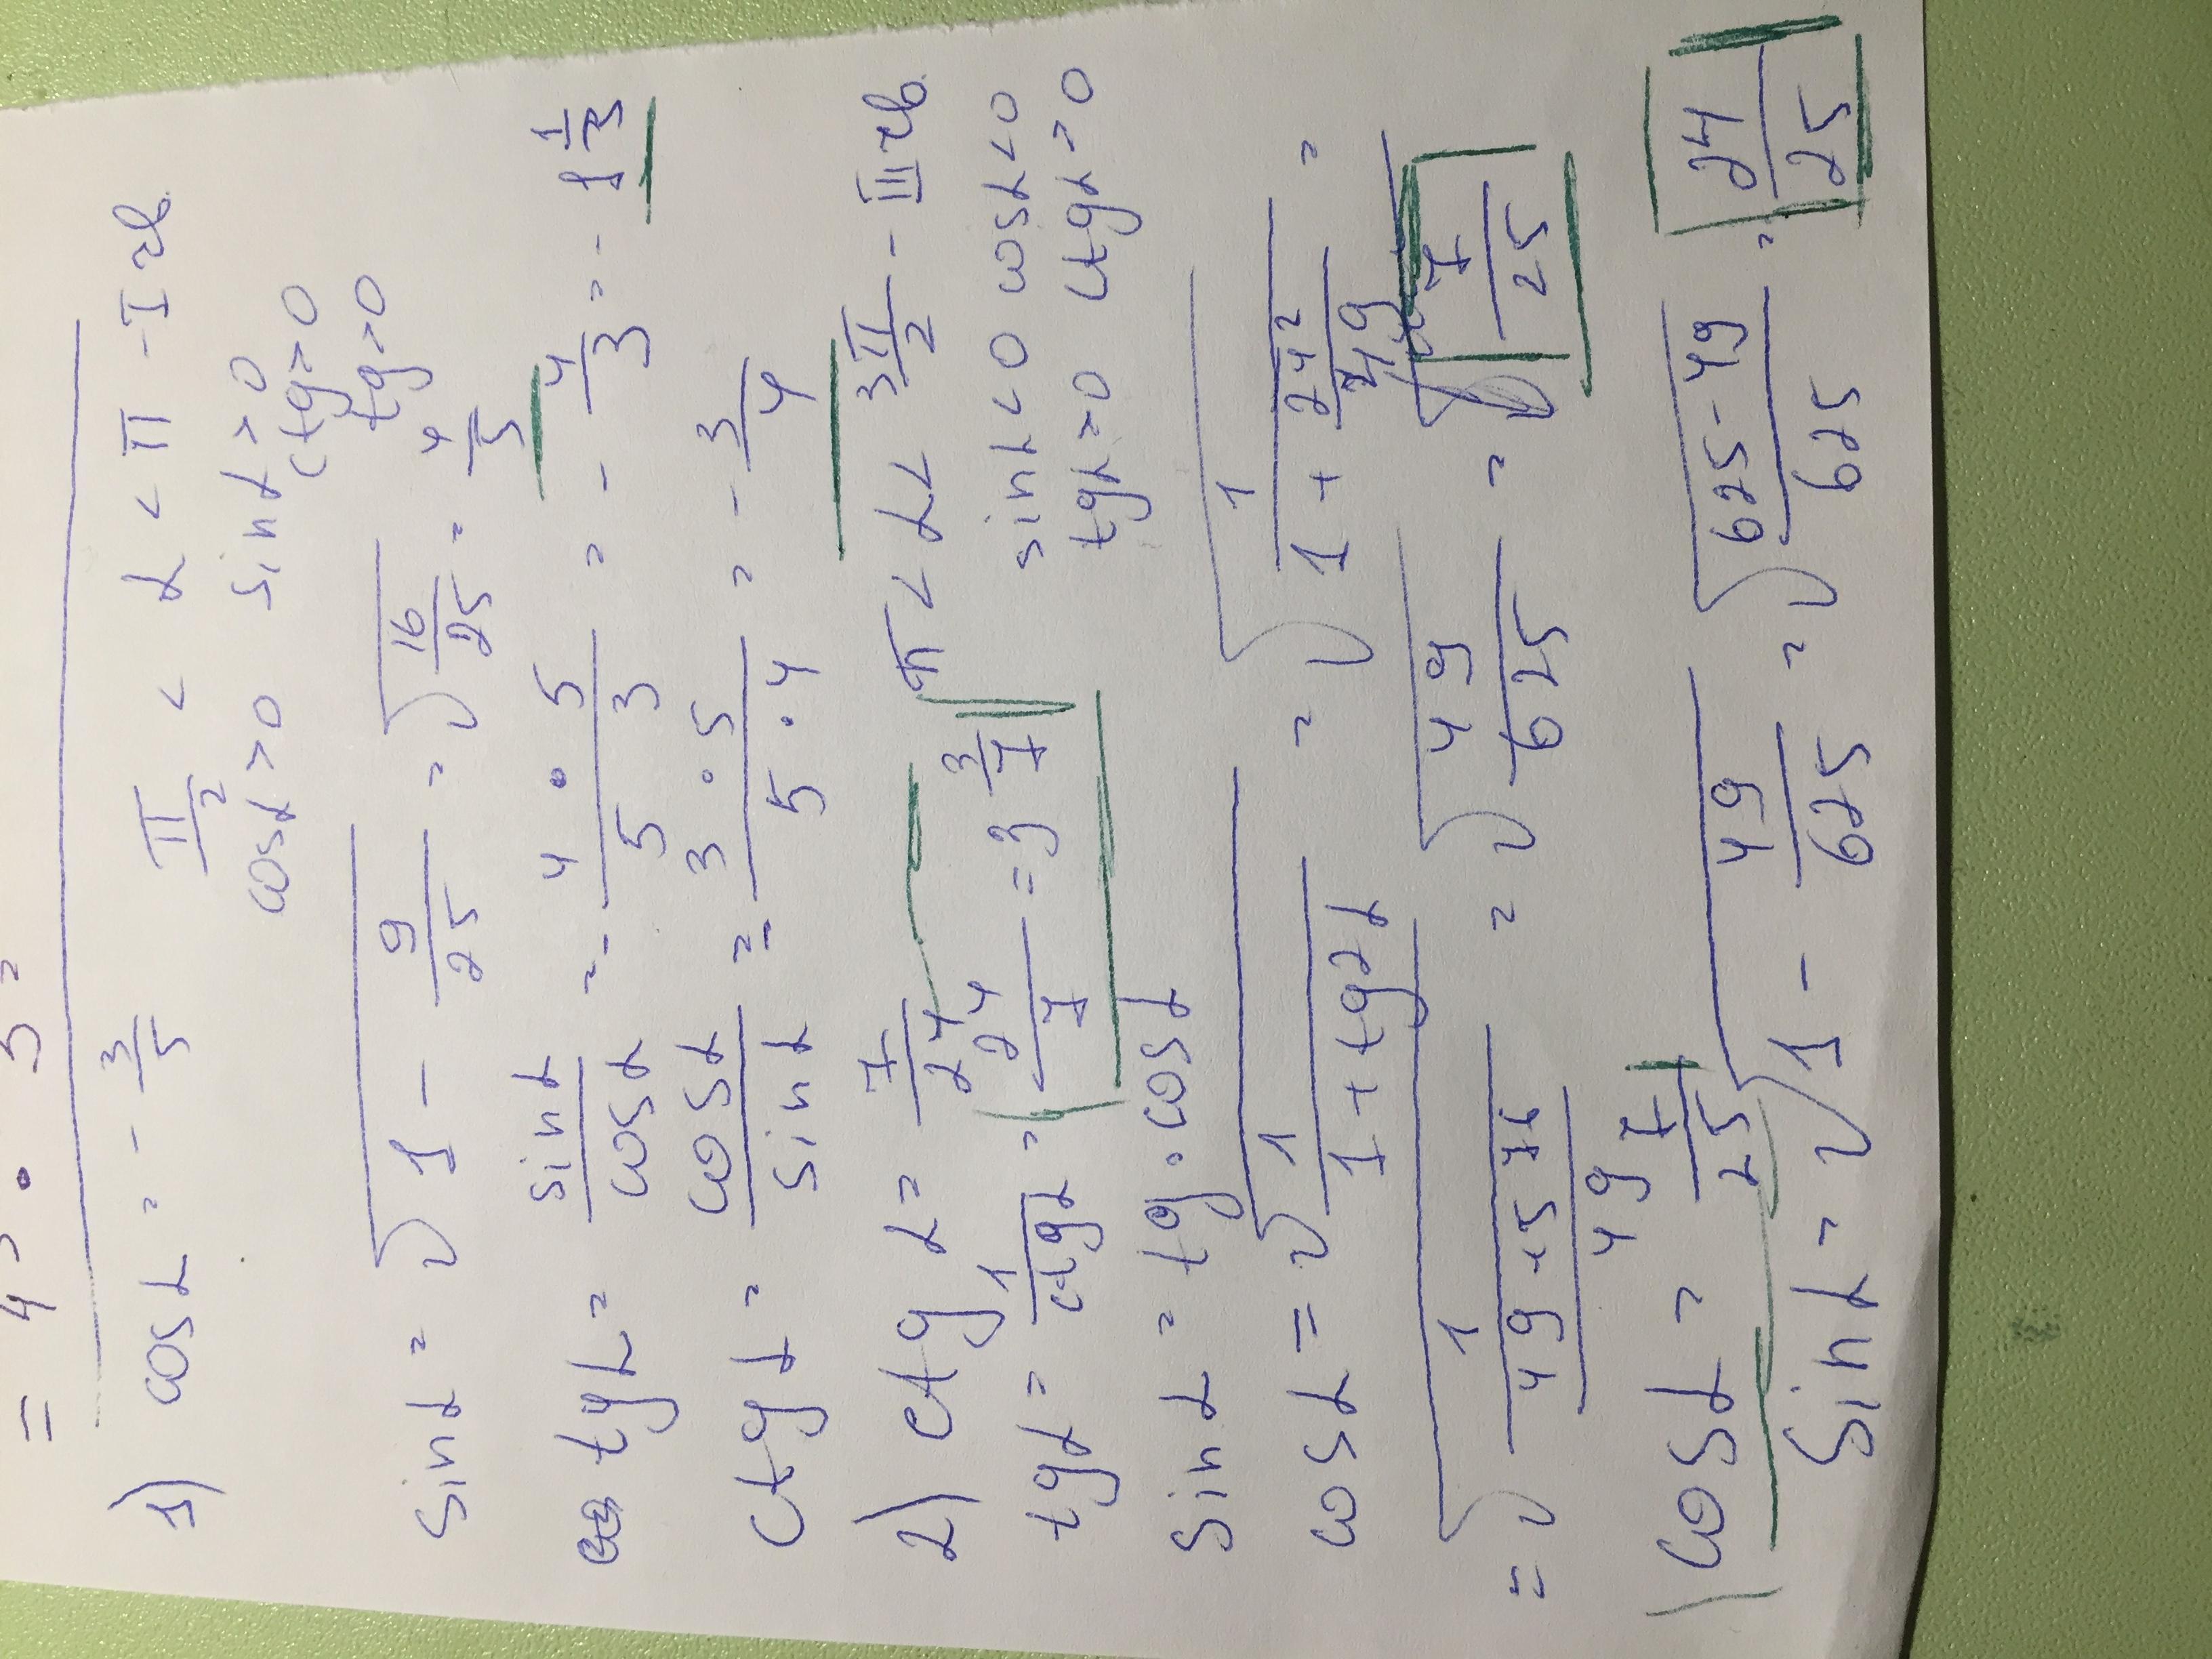 = 4 5 • 5 =
1) cos α = - 3/5 π/2 < α < π - I чв.
cos α > 0 sin α > 0
ctg > 0
tg > 0
sin α = √(1 - 9/25) = √(16/25) = 4/5
tg α = sin α/cos α = - (4 • 5)/(5 3) = - 4/3 = - 1 1/3
ctg α = cos α/sin α = - (3 • 5)/(5 • 4) = - 3/4
2) ctg α = 7/24 π < α < 3π/2 - III чв.
tg α = 1/ctg α = 24/7 = 3 3/7 sin α < 0 cos α < 0
tg α > 0 ctg α > 0
sin α = tg • cos α
cos α = √(1/(1 + tg2α)) = √(1/(1 + 24²/49)) =
= √(1/(/49)) = √(49/625) = 7/25
cos α = 7/25
sin α = √(1 - 49/625) = √((625 - 49)/625) = 24/25